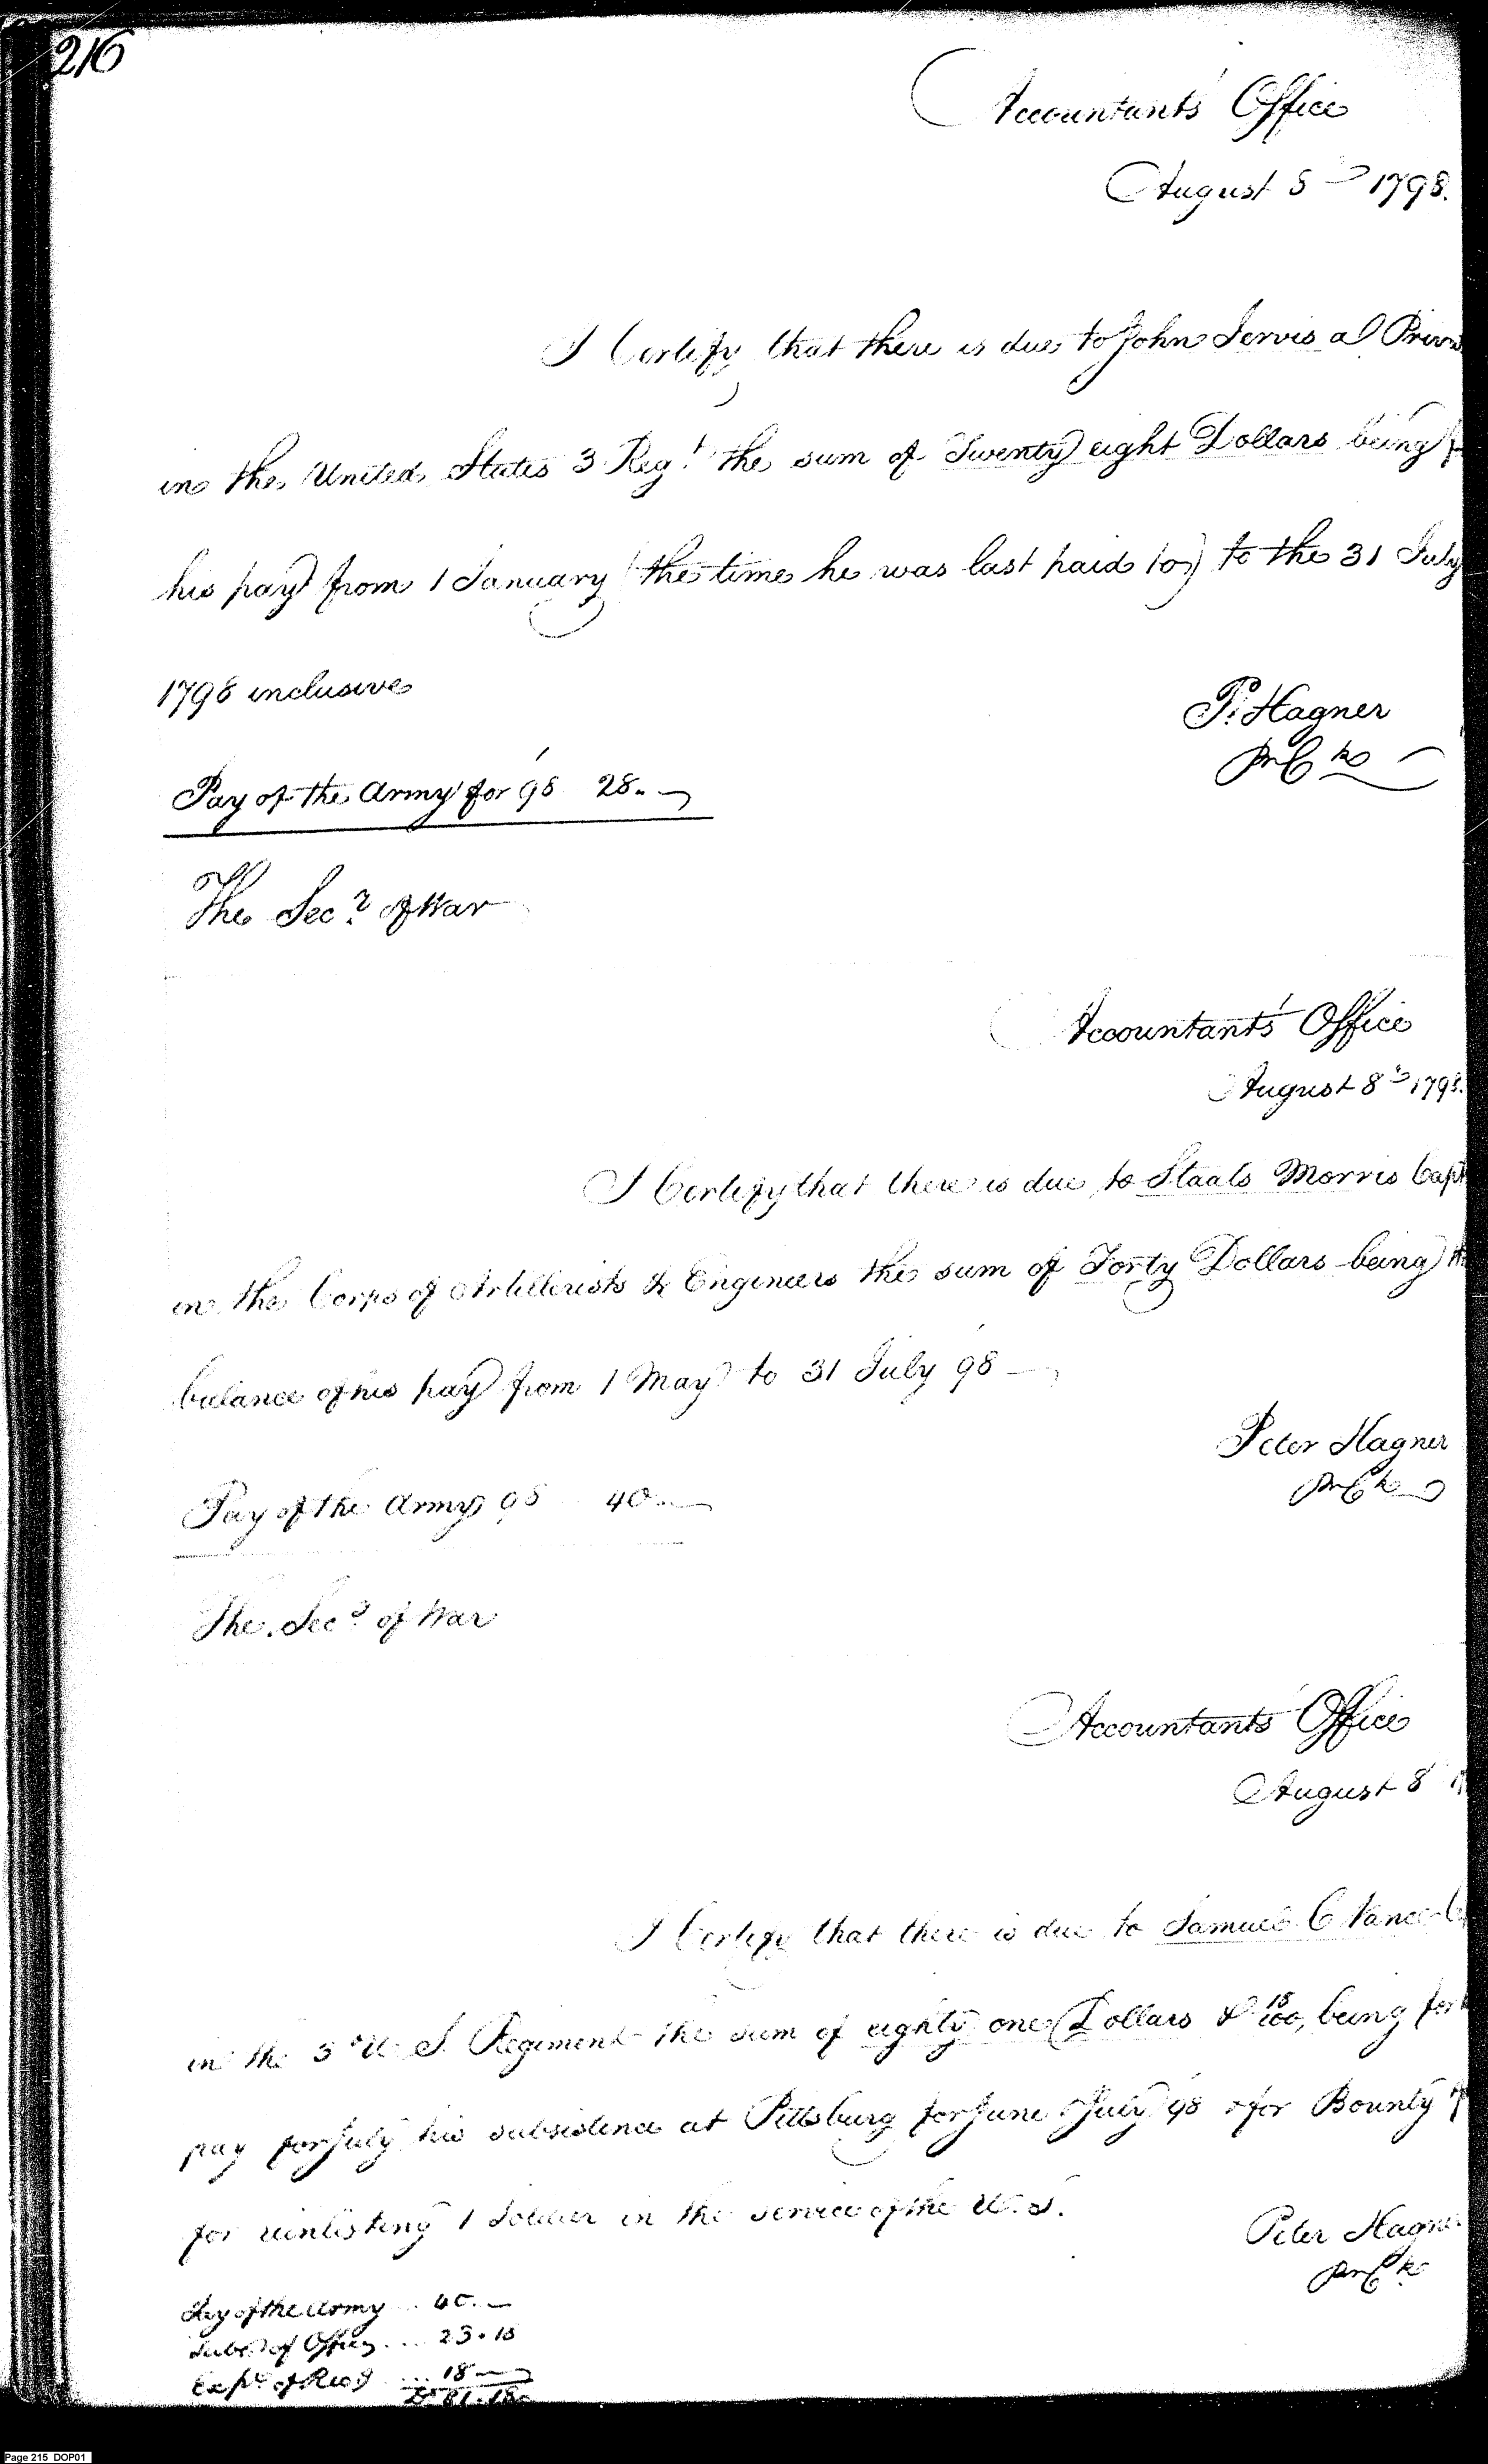 216
Accountants' Office
August 8th 1798.
I Certify that there is due to John Jervis a Priv
in the United States 3 Regt the sum of Twenty eight Dollars being
his pay from 1 January (the time he was last paid to) to the 31 July
1798 inclusive
P. Hagner
Pr Ck
Pay of the Army for 98 28..
The Secy of War
Accountants' Office
August 8th 1798.
I Certify that there is due to Staats Morris Capt
in the Corps of Artillerists & Engineers the sum of Forty Dollars being the
balance of his pay from 1 May to 31 July 98
Peter Hagner
Pr Ck
Pay of the Army 98 40..
The Secy of War
Accountants' Office
August 8
I Certify that there is due to Samuel C Vance
in the 3d U. S. Regiment the sum of eighty one Dollars & 18/100, being for
pay for July his subsistence at Pittsburg for June & July 98 & for Bounty
for reinlisting 1 Soldier in the service of the U. S.
Peter Hagner
Pr Ck
Pay of the Army .. 40..
Subs of Officers .... 23.18
Exps of Recg ... 18
Ds 81.18
Page 215 DOP01